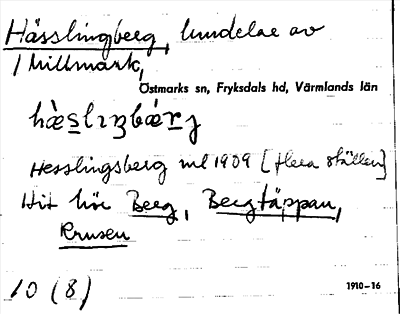 Hässlingberg, lundelar av
1 Millmark,
Östmarks sn, Fryksdals hd, Värmlands län
hæ̀slıŋbærj
Hesslingsberg ml 1909 [flera ställen]
Hit hör Berg, Bergtäppan,
Krusen
10 (8)
1910–16